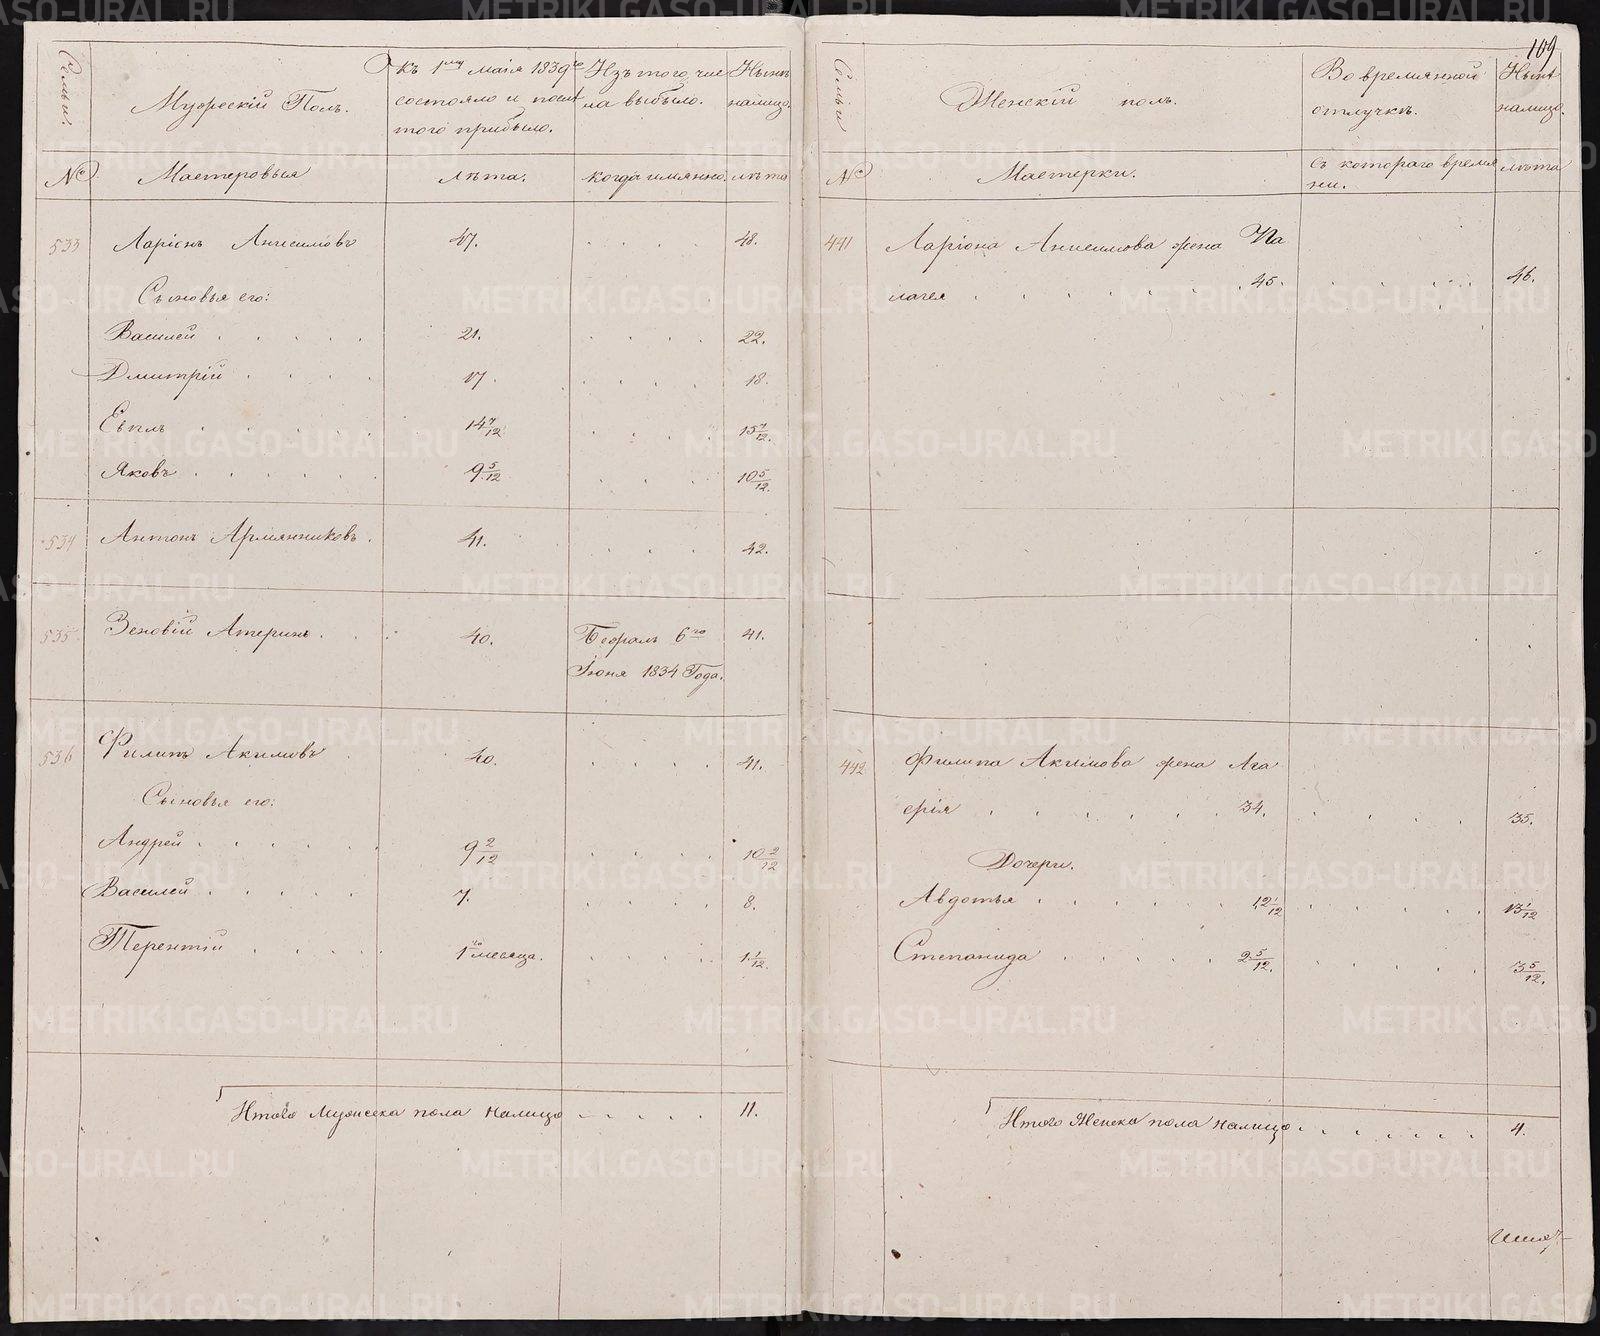 109
Семьи.
Мужескій Полъ.
Къ 1му маія 1839го состояло и послѣ того прибыло.
Изъ того числа выбыло.
Нынѣ налицо.
№
Мастеровыя
Лѣта.
когда имянно.
лѣта
533 Ларіонъ Анисимовъ 47. . . . . 48.
Сыновья его:
Василей . . . . . 21. . . . . 22.
Дмитрій . . . . 17. . . . . 18.
Евплъ . . . . . 14 7/12 . . . . 15 7/12.
Яковъ . . . . . 9 5/12 . . . . 10 5/12.
534 Антонъ Армянниковъ. 41. . . . . 42.
535 Зеновій Атеринъ. . . 40. Бежалъ 6го 41.
Іюня 1834 Года.
536 Филипъ Акимовъ 40. . . . . 41.
Сыновья его:
Андрей . . . . . 9 2/12 . . . . 10 2/12
Василей . . . . . 7. . . . . 8.
Терентій . . . . 1го месяца. . . . . 1 1/12.
Итого Мужеска пола налицо - . . . . 11.
Семьи
Женскій полъ.
Во времянной отлучкѣ.
Нынѣ налицо.
№
Мастерки.
съ котораго время
ни.
лѣта
441 Ларіона Анисимова жена Па
лагея . . . . . . 45. . . . . . 46.
442 Филипа Акимова жена Ага
ерія . . . . . . 34. . . . . 35.
Дочери.
Авдотья . . . . . 12 1/12 . . . . . 13 1/12
Степанида . . . . . 2 5/12. . . . . 3 5/12.
Итого Женска пола налицо . . . . . . 4.
METRIKI.GASO-URAL.RU